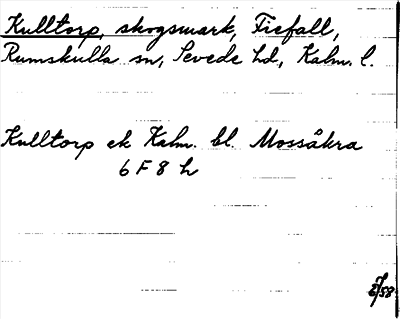 Kulltorp, skogsmark, Fiefall,
Rumskulla sn, Sevede hd, Kalm. l.
Kulltorp ek Kalm. bl. Mossåkra
6 F 8 h